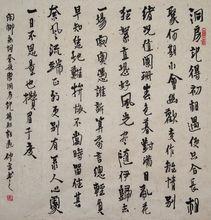 洞房記得初相遇便只合長相
聚何期小會幽歡變作離情別
緒況值闌珊春色暮對滿目亂花
狂絮直恐好風光盡隨伊歸去
一場寂寞憑誰訴算前言總輕負
早知恁地難拚悔不當時留住其
奈風流端正外更別有系人心處
一日不思量也攢眉千度